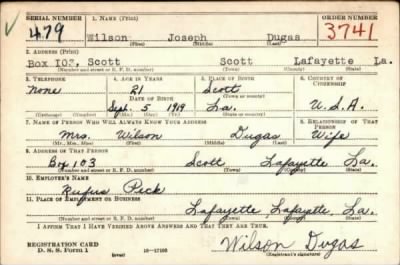 SERIAL NUMBER 1. NAME (Print) ORDER NUMBER
479 Wilson Joseph Dugas 3741
(First) (Middle) (Last)
2. ADDRESS (Print)
Box 103, Scott Scott Lafayette La.
(Number and street or R. F. D. number) (Town) (County) (State)
3. TELEPHONE 4. AGE IN YEARS 5. PLACE OF BIRTH 6. COUNTRY OF CITIZENSHIP
None 21 Scott
DATE OF BIRTH (Town or county)
Sept. 5 1919 La. U.S.A.
(Exchange) (Number) (Mo.) (Day) (Yr.) (State or country)
7. NAME OF PERSON WHO WILL ALWAYS KNOW YOUR ADDRESS 8. RELATIONSHIP OF THAT PERSON
Mrs. Wilson Dugas Wife
(Mr., Mrs., Miss) (First) (Middle) (Last)
9. ADDRESS OF THAT PERSON
Box 103 Scott Lafayette La.
(Number and street or R. F. D. number) (Town) (County) (State)
10. EMPLOYER'S NAME
Rufus Peck
11. PLACE OF EMPLOYMENT OR BUSINESS
Lafayette Lafayette La.
(Number and street or R. F. D. number) (Town) (County) (State)
I AFFIRM THAT I HAVE VERIFIED ABOVE ANSWERS AND THAT THEY ARE TRUE.
REGISTRATION CARD Wilson Dugas
D. S. S. Form 1 (over) (Registrant's signature)